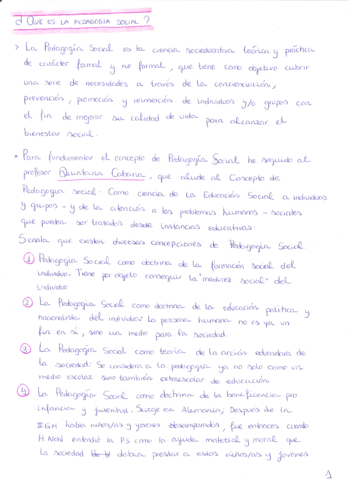 ¿ QUE ES LA PEDAGOGÍA SOCIAL ?
> La Pedagogía Social es la ciencia socioeducativa teórica y práctica
de carácter formal y no formal, que tiene como objetivo cubrir
una serie de necesidades a través de la concienciación,
prevención, promoción y reinserción de individuos y/o grupos con
el fin de mejorar su calidad de vida para alcanzar el
bienestar social.
• Para fundamentar el concepto de Pedagogía Social he seguido al
profesor Quintana Cabana, que alude al Concepto de
Pedagogía social: Como ciencia de la Educación Social a individuos
y grupos - y de la atención a los problemas humanos - sociales
que pueden ser tratados desde instancias educativas.
Señala que existen diversas concepciones de Pedagogía Social
1 Pedagogía Social como doctrina de la formación social del
individuo. Tiene por objeto conseguir la "madurez social" del
individuo
2 La Pedagogía Social como doctrina de la educación política y
nacionalista del individuo: La persona humana no es ya un
fin en sí, sino un medio para la sociedad.
3 La Pedagogía Social como teoría de la acción educadora de
la sociedad: Se considera a la pedagogía ya no solo como un
medio escolar sino también extraescolar de educación
4 La Pedagogía Social como doctrina de la beneficencia pro
infancia y juventud. Surge en Alemania, Después de la
II GM había niños/as y jovenes desamparados, fue entonces cuando
H. Nohl entendió la PS como la ayuda material y moral que
la sociedad debía prestar a estos niños/as y jovenes
1